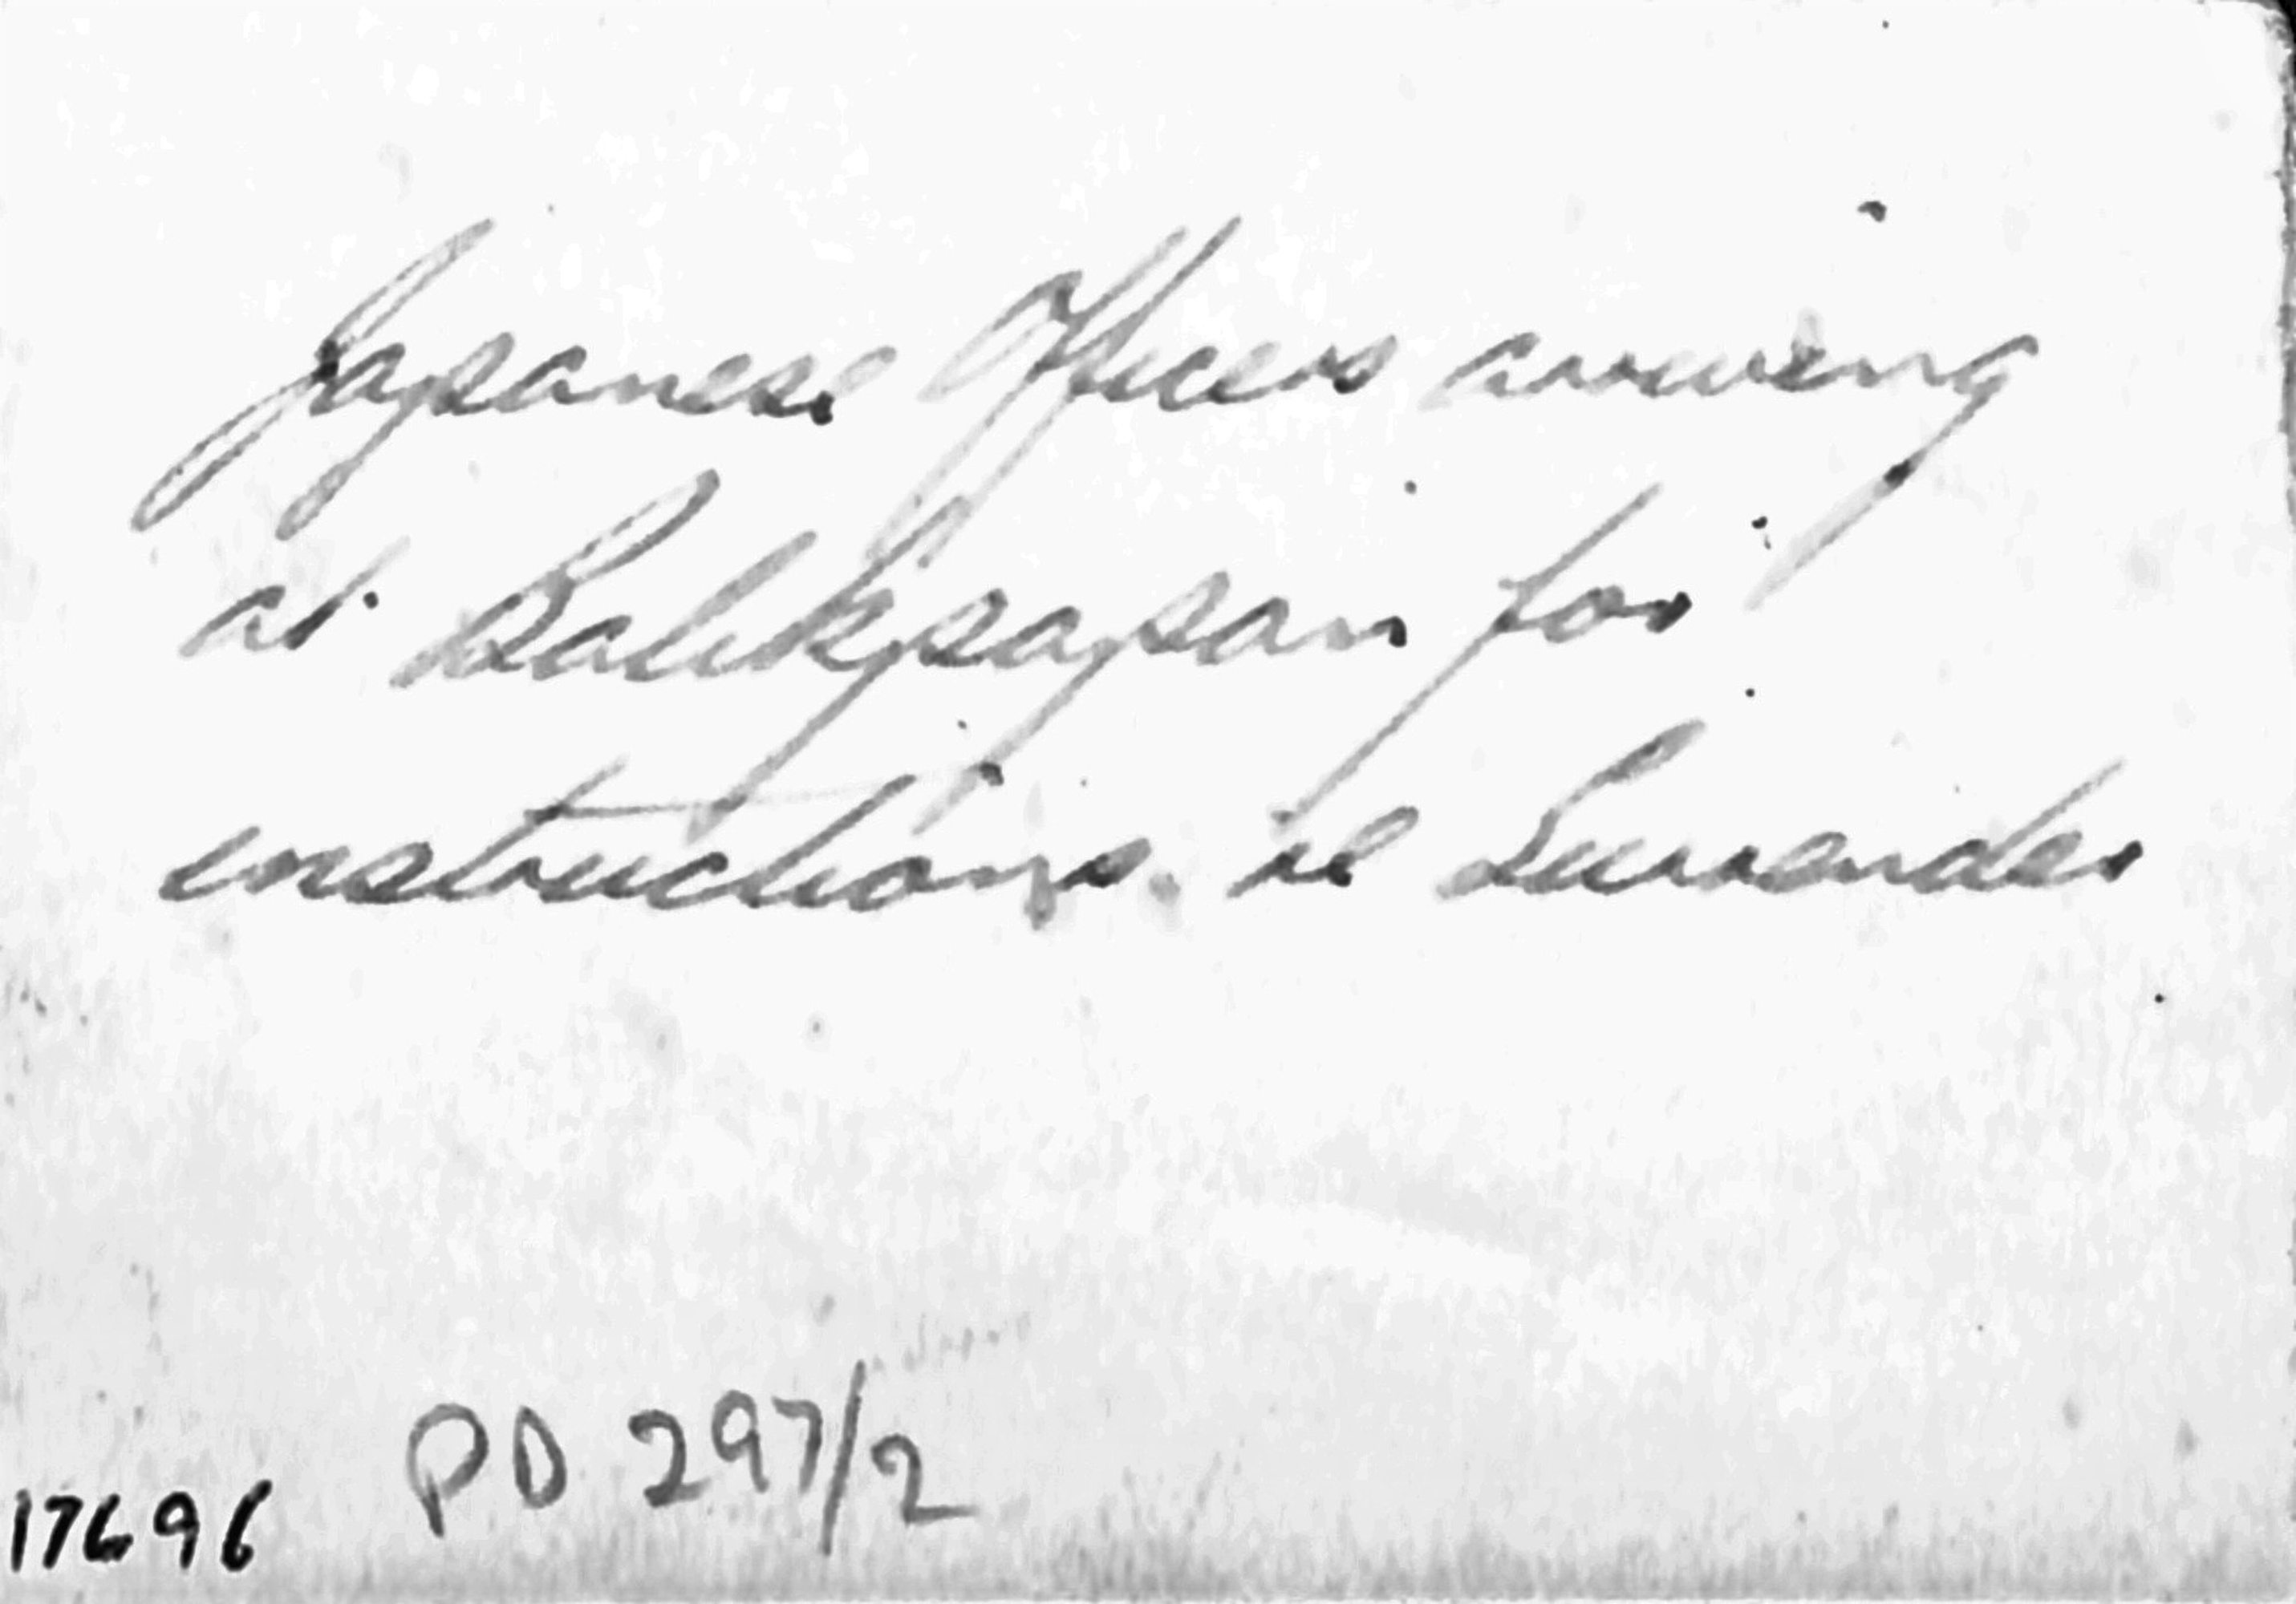 Japanese Officers arriving
at Balikpapan for
instructions re Surrender
PD 297/2
17696